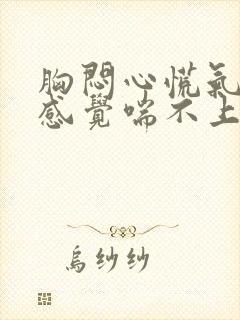 胸悶心慌氣
感覺喘不上
烏紗紗